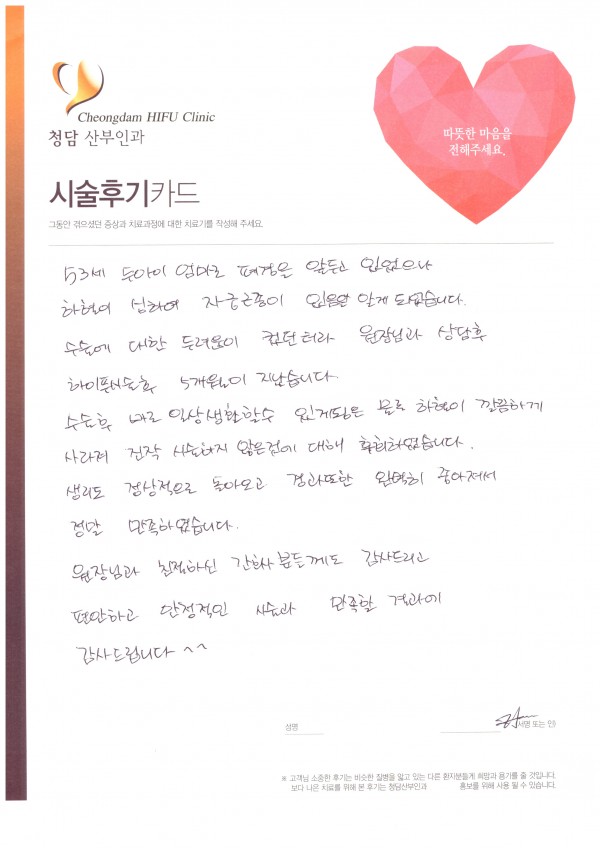 Cheongdam HIFU Clinic
청담 산부인과
따뜻한 마음을
전해주세요.
시술후기카드
그동안 겪으셨던 증상과 치료과정에 대한 치료기를 작성해 주세요.
53세 두아이 엄마로 폐경을 앞두고 있었으나
하혈이 심하여 자궁근종이 있음을 알게 되었습니다.
수술에 대한 두려움이 컸던터라 원장님과 상담후
하이푸시술후 5개월이 지났습니다.
수술후 바로 일상생활할수 있게됨은 물론 하혈이 깔끔하게
사라져 진작 시술하지 않은것에 대해 후회하였습니다.
생리도 정상적으로 돌아오고 경과또한 완벽히 좋아져서
정말 만족하였습니다.
원장님과 친절하신 간호사분들께도 감사드리고
편안하고 안정적인 시술과 만족할 결과에
감사드립니다 ^^
성명
(서명 또는 인)
※ 고객님 소중한 후기는 비슷한 질병을 앓고 있는 다른 환자분들게 희망과 용기를 줄 것입니다.
보다 나은 치료를 위해 본 후기는 청담산부인과 홍보를 위해 사용 될 수 있습니다.